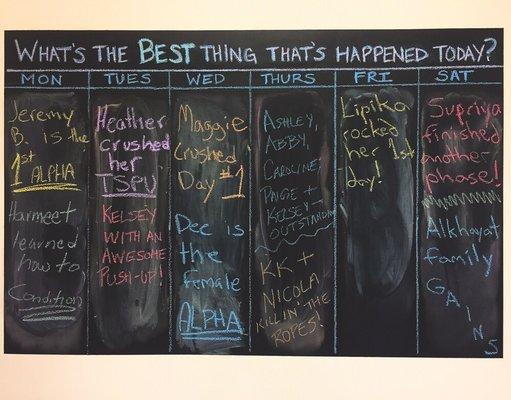 WHAT'S THE BEST THING THAT'S HAPPENED TODAY?
MON
TUES
WED
THURS
FRI
SAT
Jeremy
B. is the
1st ALPHA
Harmeet
learned
how to
Condition
Heather
crushed
her
TSPU
KELSEY
WITH AN
AWESOME
PUSH-UP!
Maggie
Crushed
Day #1
Dec is
the
female
ALPHA
ASHLEY,
ABBY,
CAROLINE,
PAIGE +
KELSEY-
OUTSTANDING
KK +
NICOLA
KILLIN' THE
ROPES!
Lipika
rocked
her 1st
day!
Supriya
finished
another
phase!
Alkhayat
family
GAINS